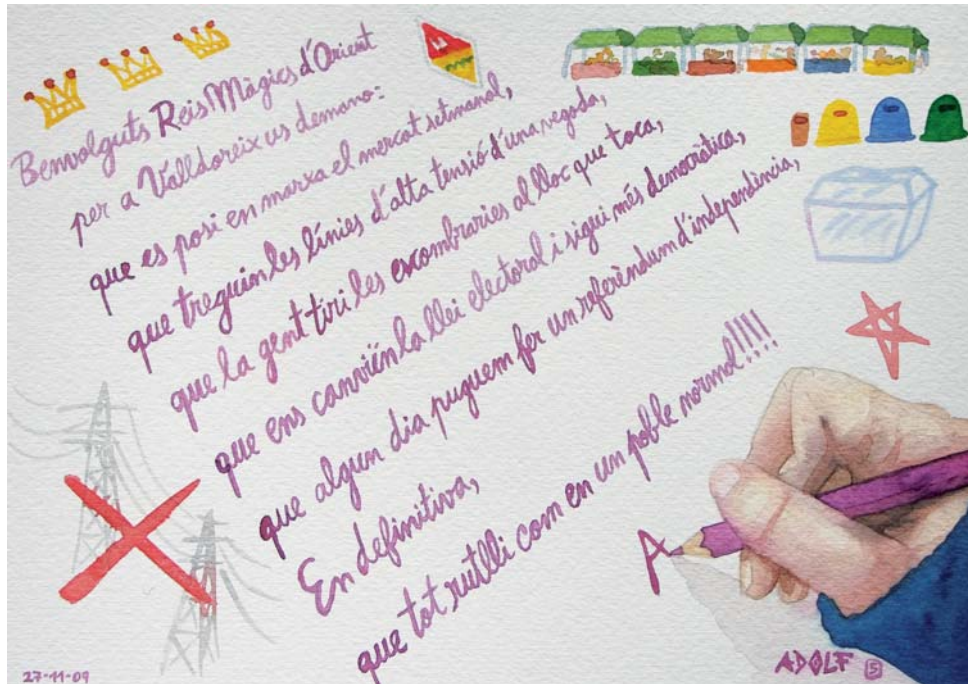 Benvolguts Reis Màgics d'Orient
per a Valldoreix us demano:
que es posi en marxa el mercat setmanal,
que treguin les línies d'alta tensió d'una vegada,
que la gent tiri les escombraries al lloc que toca,
que ens canviïn la llei electoral i sigui més democràtica,
que algun dia puguem fer un referèndum d'independència,
En definitiva,
que tot rutlli com en un poble normal!!!!
A
27-11-09
ADOLF S